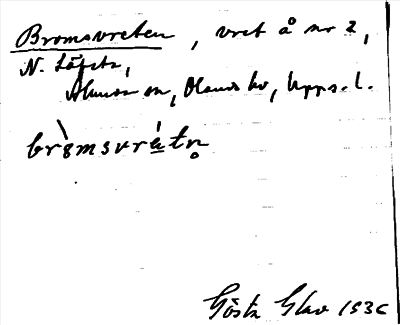 Bromsvreten, vret å nr 2,
N. Löfsta,
Alunda sn, Olands hd, Upps. l.
brò̀msvrétn̥
Gösta Glav 1936